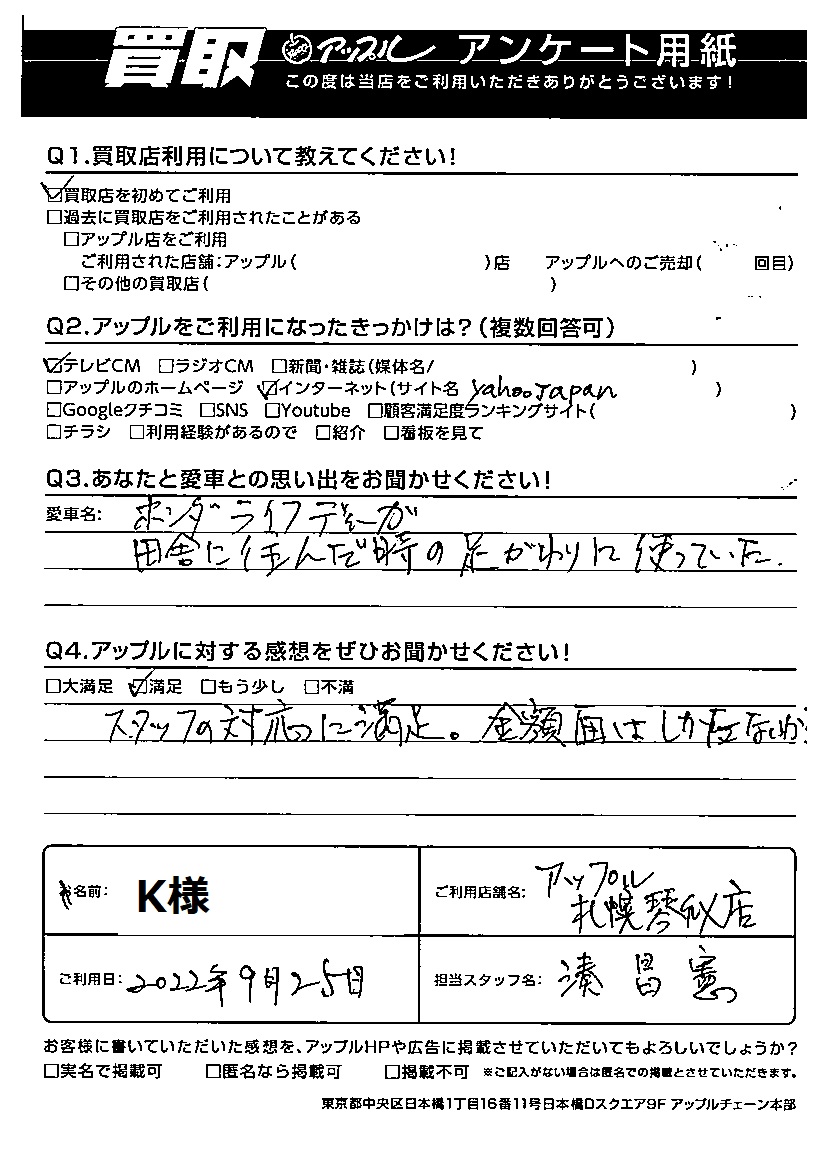 買取 アップル アンケート用紙
この度は当店をご利用いただきありがとうございます!
Q1.買取店利用について教えてください!
☑買取店を初めてご利用
□過去に買取店をご利用されたことがある
□アップル店をご利用
ご利用された店舗:アップル( )店 アップルへのご売却( 回目)
□その他の買取店( )
Q2.アップルをご利用になったきっかけは?(複数回答可)
☑テレビCM □ラジオCM □新聞・雑誌(媒体名/ )
□アップルのホームページ ☑インターネット(サイト名 yahoo Japan )
□Googleクチコミ □SNS □Youtube □顧客満足度ランキングサイト( )
□チラシ □利用経験があるので □紹介 □看板を見て
Q3.あなたと愛車との思い出をお聞かせください!
愛車名: ホンダ ライフ ディーバ
田舎に住んだ時の足がわりに使っていた.
Q4.アップルに対する感想をぜひお聞かせください!
□大満足 ☑満足 □もう少し □不満
スタッフの対応に満足。金額面はしかたないか
お名前: K様
ご利用店舗名: アップル
札幌琴似店
ご利用日: 2022年9月25日
担当スタッフ名: 湊 昌憲
お客様に書いていただいた感想を、アップルHPや広告に掲載させていただいてもよろしいでしょうか?
□実名で掲載可 □匿名なら掲載可 □掲載不可 ※ご記入がない場合は匿名での掲載とさせていただきます。
東京都中央区日本橋1丁目16番11号日本橋Dスクエア9F アップルチェーン本部